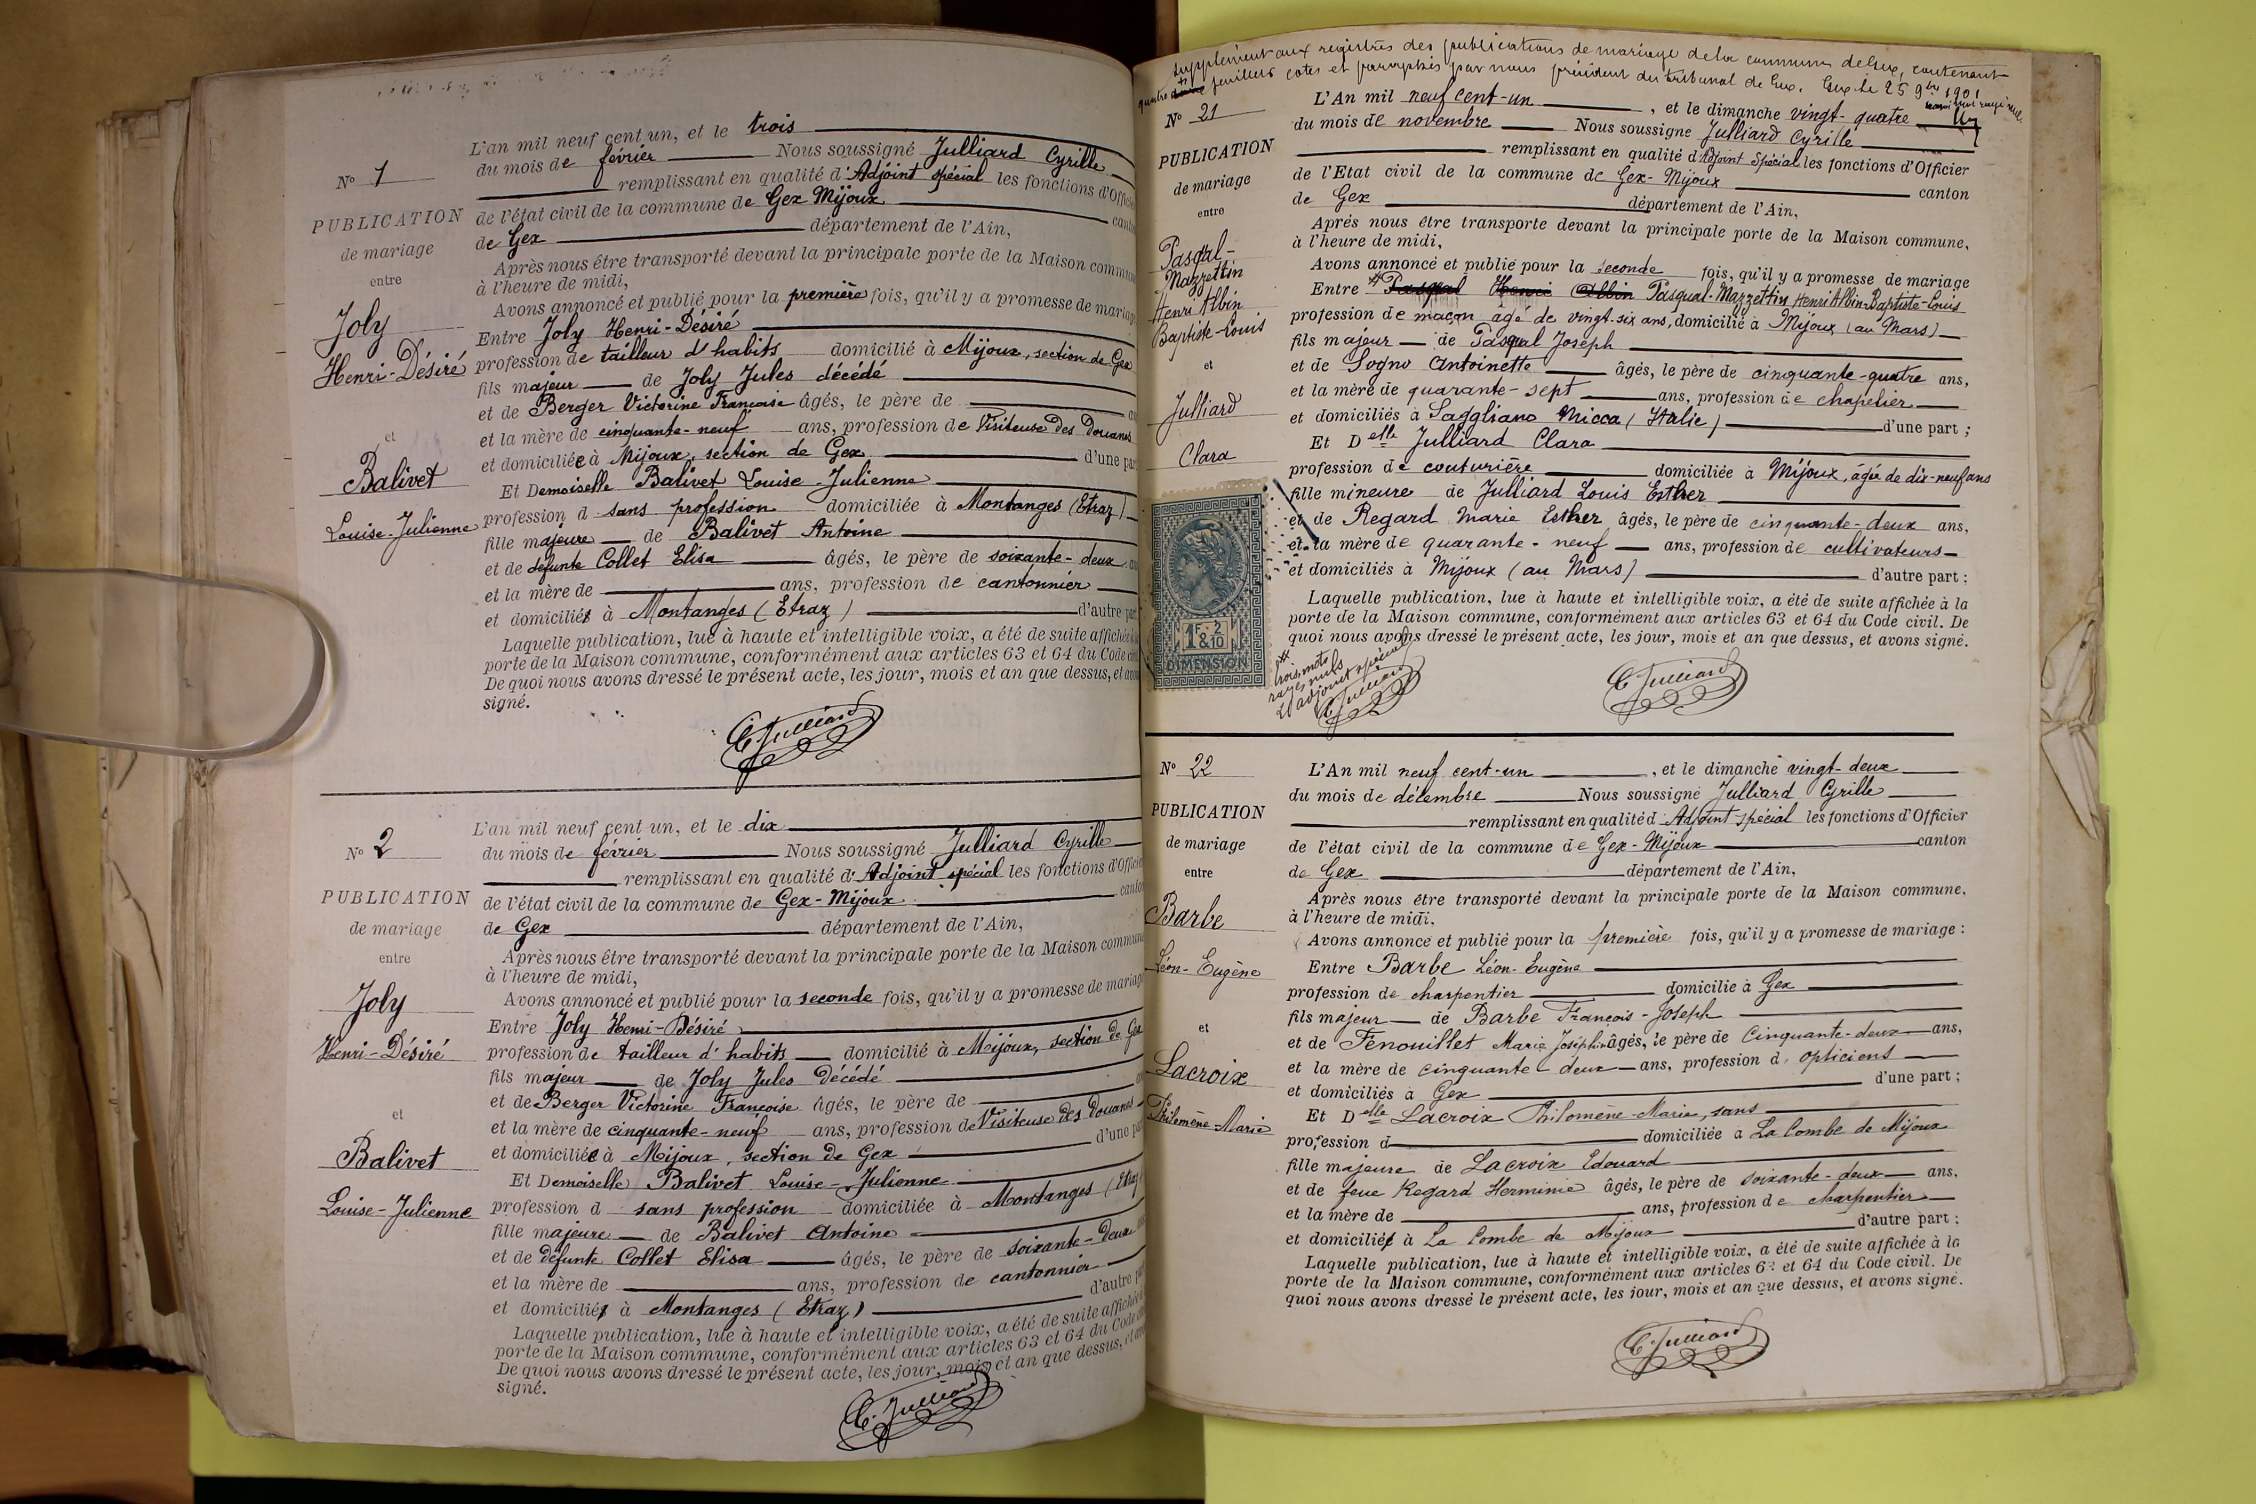 N° 1
PUBLICATION
de mariage
entre
Joly
Henri-Désiré
et
Balivet
Louise-Julienne
L'an mil neuf cent un, et le trois
du mois de février Nous soussigné Julliard Cyrille
remplissant en qualité d'Adjoint spécial les fonctions d'Officier
de l'état civil de la commune de Gex Mijoux canton
de Gex département de l'Ain,
Après nous être transporté devant la principale porte de la Maison commune
à l'heure de midi,
Avons annoncé et publié pour la première fois, qu'il y a promesse de mariage
Entre Joly Henri-Désiré
profession de tailleur d'habits domicilié à Mijoux, section de Gex
fils majeur de Joly Jules décédé
et de Berger Victorine Françoise âgés, le père de
et la mère de cinquante-neuf ans, profession de Visiteuse des Douanes
et domiciliée à Mijoux, section de Gex d'une part
Et Demoiselle Balivet Louise-Julienne
profession d sans profession domiciliée à Montanges (Etraz)
fille majeure de Balivet Antoine
et de défunte Collet Elisa âgés, le père de soixante-deux
et la mère de ans, profession de cantonnier
et domiciliés à Montanges (Etraz) d'autre part
Laquelle publication, lue à haute et intelligible voix, a été de suite affichée à la
porte de la Maison commune, conformément aux articles 63 et 64 du Code civil
De quoi nous avons dressé le présent acte, les jour, mois et an que dessus, et avons
signé.
C. Julliard
N° 2
PUBLICATION
de mariage
entre
Joly
Henri-Désiré
et
Balivet
Louise-Julienne
L'an mil neuf cent un, et le dix
du mois de février Nous soussigné Julliard Cyrille
remplissant en qualité d'Adjoint spécial les fonctions d'Officier
de l'état civil de la commune de Gex-Mijoux canton
de Gex département de l'Ain,
Après nous être transporté devant la principale porte de la Maison commune
à l'heure de midi,
Avons annoncé et publié pour la seconde fois, qu'il y a promesse de mariage
Entre Joly Henri-Désiré
profession de tailleur d'habits domicilié à Mijoux, section de Gex
fils majeur de Joly Jules décédé
et de Berger Victorine Françoise âgés, le père de
et la mère de cinquante-neuf ans, profession de Visiteuse des Douanes
et domiciliée à Mijoux, section de Gex d'une part
Et Demoiselle Balivet Louise-Julienne
profession d sans profession domiciliée à Montanges (Etraz)
fille majeure de Balivet Antoine
et de défunte Collet Elisa âgés, le père de soixante-deux
et la mère de ans, profession de cantonnier
et domiciliés à Montanges (Etraz) d'autre part
Laquelle publication, lue à haute et intelligible voix, a été de suite affichée
porte de la Maison commune, conformément aux articles 63 et 64 du Code
De quoi nous avons dressé le présent acte, les jour, mois et an que dessus, et
signé.
C. Julliard
Supplément aux registres des publications de mariage de la commune de Gex, contenant
quatre feuillets cotés et paraphés par nous président du tribunal de Gex. Gex le 25 9bre 1901
N° 21
PUBLICATION
de mariage
entre
Pasqal-
Mazzettin
Henri Albin
Baptiste-Louis
et
Julliard
Clara
L'An mil neuf cent-un, et le dimanche vingt-quatre
du mois de novembre Nous soussigné Julliard Cyrille
remplissant en qualité d'Adjoint Spécial les fonctions d'Officier
de l'Etat civil de la commune de Gex-Mijoux canton
de Gex département de l'Ain,
Après nous être transporté devant la principale porte de la Maison commune,
à l'heure de midi,
Avons annoncé et publié pour la seconde fois, qu'il y a promesse de mariage
Entre Pasqual Henri Albin Pasqual-Mazzettin Henri Albin-Baptiste-Louis
profession de maçon âgé de vingt-six ans, domicilié à Mijoux (au Mars)
fils majeur de Pasqual Joseph
et de Sogno Antoinette âgés, le père de cinquante-quatre ans,
et la mère de quarante-sept ans, profession de chapelier
et domiciliés à Saggliano Micca (Italie) d'une part ;
Et Delle Julliard Clara
profession de couturière domiciliée à Mijoux, âgée de dix-neuf ans
fille mineure de Julliard Louis Esther
et de Regard Marie Esther âgés, le père de cinquante-deux ans,
et la mère de quarante-neuf ans, profession de cultivateurs
et domiciliés à Mijoux (au Mars) d'autre part :
Laquelle publication, lue à haute et intelligible voix, a été de suite affichée à la
porte de la Maison commune, conformément aux articles 63 et 64 du Code civil. De
quoi nous avons dressé le présent acte, les jour, mois et an que dessus, et avons signé.
1F & 2/10
DIMENSION
trois mots
rayés nuls
L'adjoint spécial
C. Julliard
C. Julliard
N° 22
PUBLICATION
de mariage
entre
Barbe
Léon-Eugène
et
Lacroix
Philomène-Marie
L'An mil neuf cent-un, et le dimanche vingt-deux
du mois de décembre Nous soussigné Julliard Cyrille
remplissant en qualité d'Adjoint spécial les fonctions d'Officier
de l'état civil de la commune de Gex-Mijoux canton
de Gex département de l'Ain,
Après nous être transporté devant la principale porte de la Maison commune.
à l'heure de midi.
Avons annoncé et publié pour la première fois, qu'il y a promesse de mariage :
Entre Barbe Léon-Eugène
profession de charpentier domicilié à Gex
fils majeur de Barbe François-Joseph
et de Fenouillet Marie Joséphine âgés, le père de cinquante-deux ans,
et la mère de cinquante-deux ans, profession d'opticiens
et domiciliés à Gex d'une part ;
Et Delle Lacroix Philomène-Marie, sans
profession d domiciliée à La Combe de Mijoux
fille majeure de Lacroix Edouard
et de feue Regard Herminie âgés, le père de soixante-deux ans.
et la mère de ans, profession de charpentier
et domiciliés à La Combe de Mijoux d'autre part ;
Laquelle publication, lue à haute et intelligible voix, a été de suite affichée à la
porte de la Maison commune, conformément aux articles 63 et 64 du Code civil. De
quoi nous avons dressé le présent acte, les jour, mois et an que dessus, et avons signé.
C. Julliard